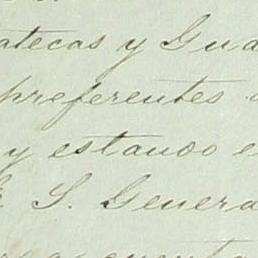 atecas y Gua
preferentes
y estando e
S. General